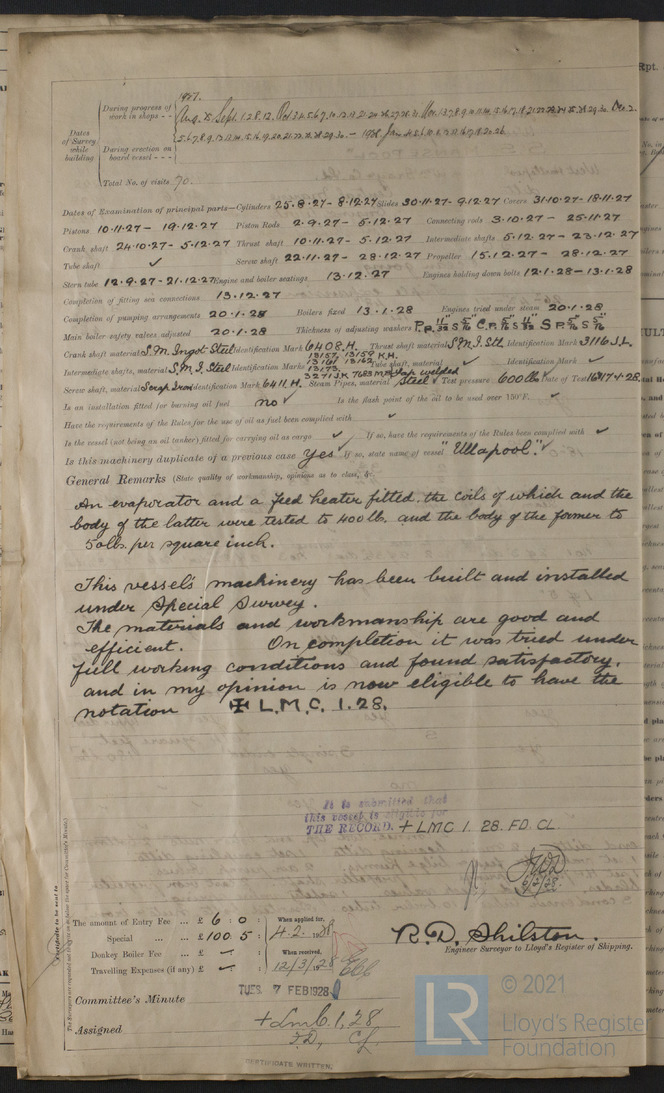 1927.
During progress of work in shops - -
Aug. 25 Sept. 1.2.8.12. Oct 3.4.5.6.7.10.12.13.21.20.26.27.28.31 Nov. 1.3.7.8.9.10.11.14.15.16.17.18.21.22.23.24.25.28.29.30. Dec. 2.
Dates of Survey while building
During erection on board vessel - - -
5.6.7.8.9.12.13.14.15.16.19.20.21.22.23.28.29.30. - 1928 Jan 4.5.6.10.11.12.13.16.17.18.20.26.
Total No. of visits 70.
Dates of Examination of principal parts—Cylinders 25.8.27 - 8.12.27 Slides 30.11.27 - 9.12.27 Covers 31.10.27 - 18.11.27
Pistons 10.11.27 - 19.12.27 Piston Rods 2.9.27 - 5.12.27 Connecting rods 3.10.27 - 25.11.27
Crank shaft 24.10.27 - 5.12.27 Thrust shaft 10.11.27 - 5.12.27 Intermediate shafts 5.12.27 - 23.12.27
Tube shaft ✓ Screw shaft 22.11.27 - 28.12.27 Propeller 15.12.27 - 28.12.27
Stern tube 12.9.27 - 21.12.27 Engine and boiler seatings 13.12.27 Engines holding down bolts 12.1.28 - 13.1.28
Completion of fitting sea connections 13.12.27
Completion of pumping arrangements 20.1.28 Boilers fixed 13.1.28 Engines tried under steam 20.1.28
Main boiler safety valves adjusted 20.1.28 Thickness of adjusting washers
Crank shaft material S.M. Ingot Steel Identification Mark 6408.H. Thrust shaft material S.M.I. Stl Identification Mark 3116 J.L.
Intermediate shafts, material S.M.I. Steel Identification Marks 13157, 13159 K.H. 13161 13162 13173 Tube shaft, material ✓ Identification Mark ✓
Screw shaft, material Scrap Iron Identification Mark 6411.H. Steam Pipes, material lap welded Steel ✓ Test pressure 600 lbs Date of Test
Is an installation fitted for burning oil fuel no ✓ Is the flash point of the oil to be used over 150°F. ✓
Have the requirements of the Rules for the use of oil as fuel been complied with ✓
Is the vessel (not being an oil tanker) fitted for carrying oil as cargo ✓ If so, have the requirements of the Rules been complied with ✓
Is this machinery duplicate of a previous case Yes If so, state name of vessel "Ullapool." ✓
General Remarks (State quality of workmanship, opinions as to class, &c.
An evaporator and a feed heater fitted. the coils of which and the
body of the latter were tested to 400 lb. and the body of the former to
50 lbs. per square inch.
This vessel's machinery has been built and installed
under Special Survey.
The materials and workmanship are good and
efficient. On completion it was tried under
full working conditions and found satisfactory,
and in my opinion is now eligible to have the
notation ✠ L.M.C. 1.28.
It is submitted that
this vessel is eligible for
THE RECORD. + LMC 1.28. FD. CL.
The amount of Entry Fee ... £ 6 : 0 : When applied for,
Special ... ... £ 100 : 5 : 4.2.1928
Donkey Boiler Fee ... £ When received,
Travelling Expenses (if any) £ 12/3/1928
R.D. Shilston.
Engineer Surveyor to Lloyd's Register of Shipping.
Committee's Minute TUES. 7 FEB 1928
Assigned + Lmc 1.28
F.D. CL
CERTIFICATE WRITTEN.
LR
© 2021
Lloyd's Register
Foundation